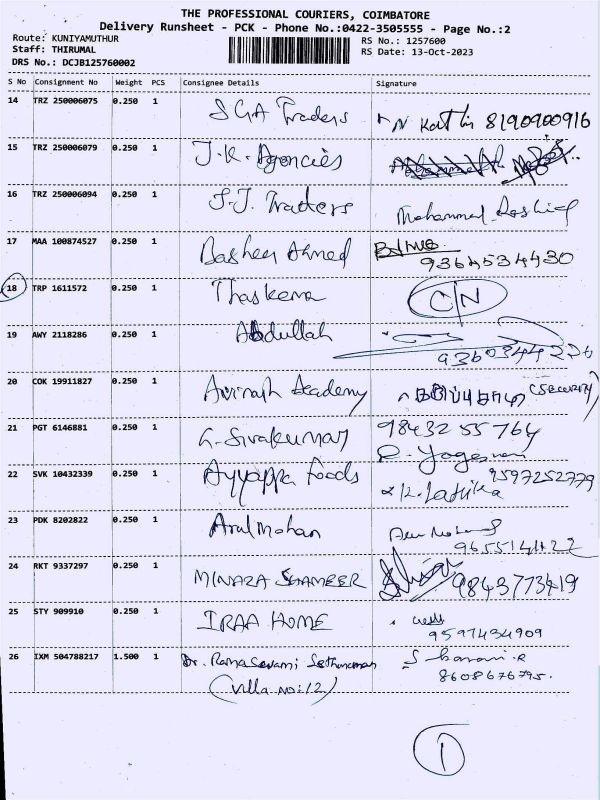 THE PROFESSIONAL COURIERS, COIMBATORE
Delivery Runsheet - PCK - Phone No.:0422-3505555 - Page No.:2
Route: KUNIYAMUTHUR RS No.: 1257600
Staff: THIRUMAL RS Date: 13-Oct-2023
DRS No.: DCJB125760002
S No Consignment No Weight PCS Consignee Details Signature
14 TRZ 250006075 0.250 1 SGA Traders 8190900916
15 TRZ 250006079 0.250 1 J.K. Agencies
16 TRZ 250006094 0.250 1 J.J. Traders Mohammed
17 MAA 100874527 0.250 1 Basheer Ahmed
9364534430
18 TRP 1611572 0.250 1 C/N
19 AWY 2118286 0.250 1 Abdullah
20 COK 19911827 0.250 1 Avinash Academy (Security)
21 PGT 6146881 0.250 1 G. Sivakumar 98432 55764
22 SVK 10432339 0.250 1 Ayyappa Foods 9597252779
23 PDK 8202822 0.250 1 Arul Mohan
24 RKT 9337297 0.250 1 MINAZA SHAMEER 9843773419
25 STY 909910 0.250 1 IRAA HOME
9597434909
26 IXM 504788217 1.500 1 Dr. Ramaswami
(Villa No:12) 8608676795.
1